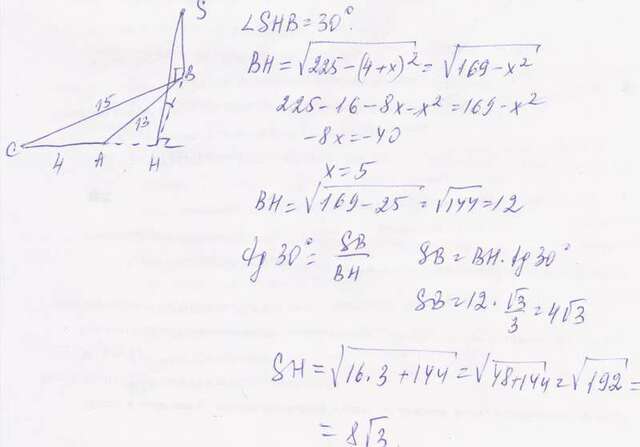 S
B
15
13
x
C
4
A
H
∠SHB = 30°.
BH = √(225-(4+x)²) = √(169-x²)
225-16-8x-x² = 169-x²
-8x = -40
x = 5
BH = √(169-25) = √144 = 12
tg 30° = SB/BH SB = BH · tg 30°
SB = 12 · √3/3 = 4√3
SH = √(16·3+144) = √(48+144) = √192 =
= 8√3